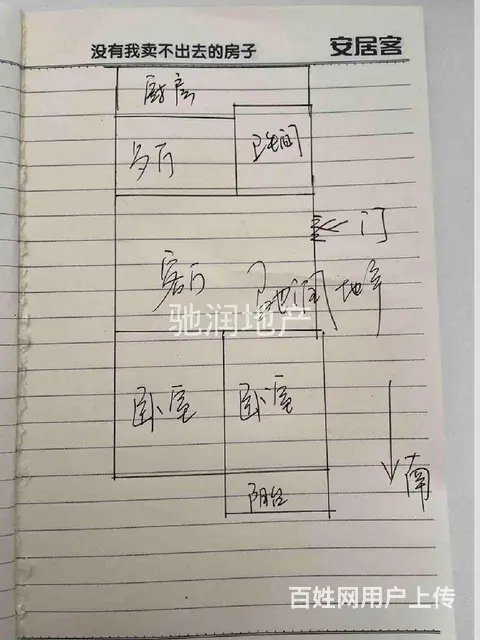 没有我卖不出去的房子
安居客
厨房
餐厅
卫生间
门
客厅
驰润地产
驰润地产
卧室
卧室
南
阳台
百姓网用户上传